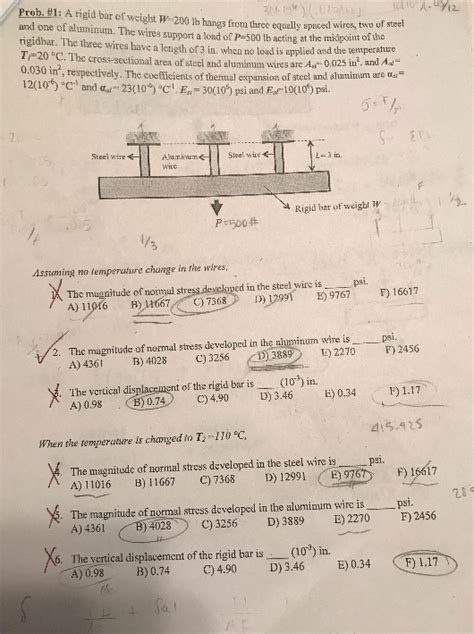 Prob. #1: A rigid bar of weight W=200 lb hangs from three equally spaced wires, two of steel
and one of aluminum. The wires support a load of P=500 lb acting at the midpoint of the
rigidbar. The three wires have a length of 3 in. when no load is applied and the temperature
T₁=20 °C. The cross-sectional area of steel and aluminum wires are Ast= 0.025 in². and Aal=
0.030 in², respectively. The coefficients of thermal expansion of steel and aluminum are αst=
12(10⁻⁶) °C⁻¹ and αal= 23(10⁻⁶) °C⁻¹. Est = 30(10⁶) psi and Eal=10(10⁶) psi.
Steel wire
Aluminum
wire
Steel wire
L= 3 in.
Rigid bar of weight W
P=500 lb
1/3
Assuming no temperature change in the wires,
1. The magnitude of normal stress developed in the steel wire is ____ psi.
A) 11016 B) 11667 C) 7368 D) 12991 E) 9767 F) 16617
2. The magnitude of normal stress developed in the aluminum wire is ____ psi.
A) 4361 B) 4028 C) 3256 D) 3889 E) 2270 F) 2456
3. The vertical displacement of the rigid bar is ____ (10⁻³) in.
A) 0.98 B) 0.74 C) 4.90 D) 3.46 E) 0.34 F) 1.17
415.925
When the temperature is changed to T₂=110 °C,
4. The magnitude of normal stress developed in the steel wire is ____ psi.
A) 11016 B) 11667 C) 7368 D) 12991 E) 9767 F) 16617
5. The magnitude of normal stress developed in the aluminum wire is ____ psi.
A) 4361 B) 4028 C) 3256 D) 3889 E) 2270 F) 2456
6. The vertical displacement of the rigid bar is ____ (10⁻³) in.
A) 0.98 B) 0.74 C) 4.90 D) 3.46 E) 0.34 F) 1.17